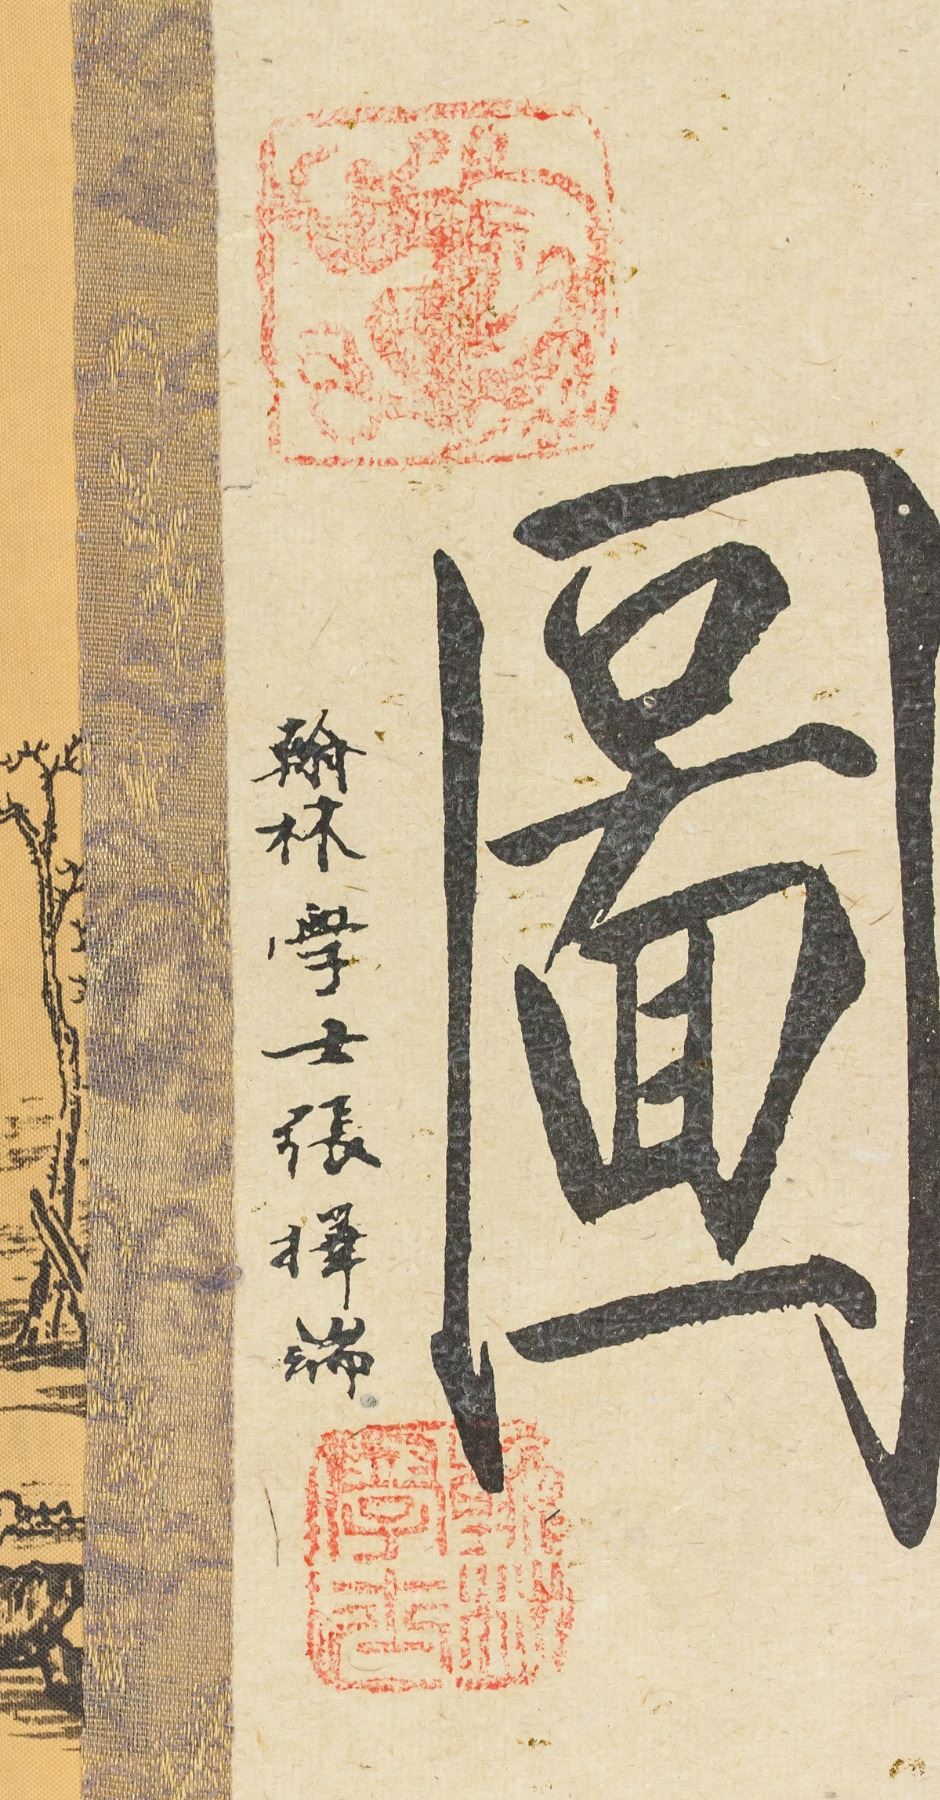 圖
翰林學士張擇端